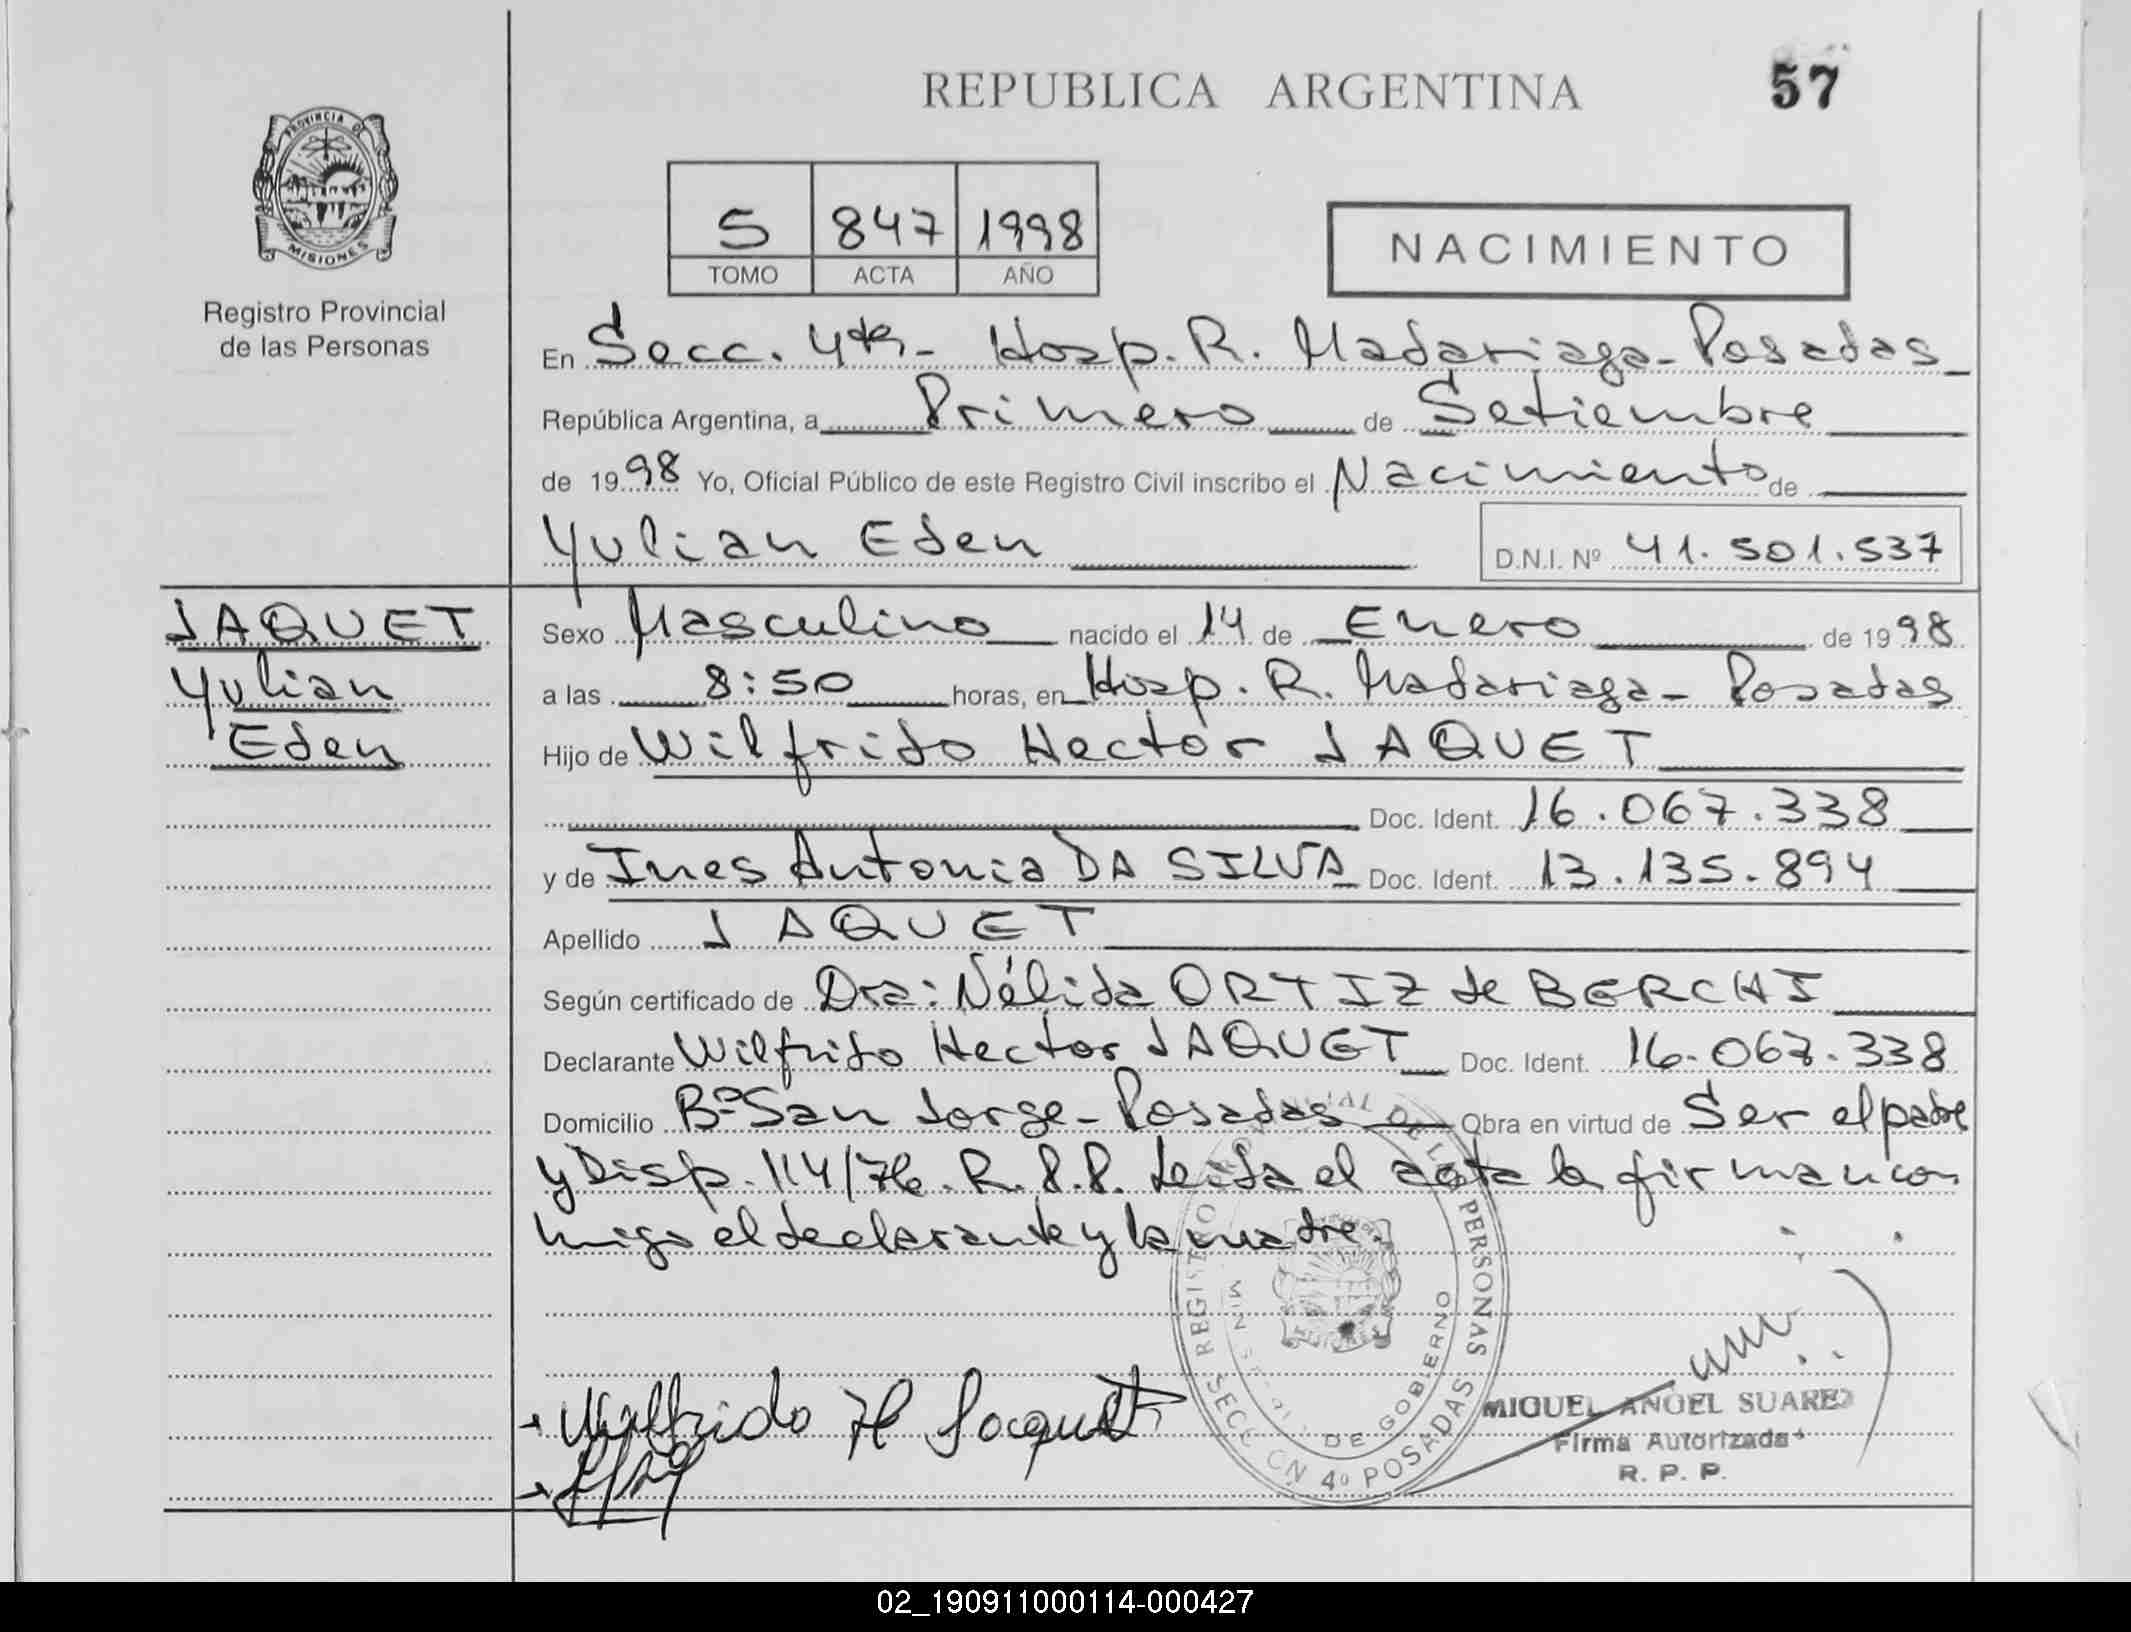 REPUBLICA ARGENTINA
57
PROVINCIA DE
MISIONES
Registro Provincial
de las Personas
5 847 1998
TOMO ACTA AÑO
NACIMIENTO
En Secc. 4ta - Hosp. R. Madariaga - Posadas
República Argentina, a Primero de Setiembre
de 1998 Yo, Oficial Público de este Registro Civil inscribo el Nacimiento de
Yulian Eden
D.N.I. Nº 41.501.537
JAQUET
Yulian
Eden
Sexo Masculino nacido el 14 de Enero de 1998
a las 8:50 horas, en Hosp. R. Madariaga - Posadas
Hijo de Wilfrido Hector JAQUET
Doc. Ident. 16.067.338
y de Ines Antonia DA SILVA Doc. Ident. 13.135.894
Apellido JAQUET
Según certificado de Dra: Nélida ORTIZ de BERCHI
Declarante Wilfrido Hector JAQUET Doc. Ident. 16.067.338
Domicilio Bº San Jorge - Posadas Obra en virtud de Ser el padre
y Disp. 114/76. R.P.P. Leida el acta la firman con
migo el declarante y la madre.
REGISTRO PROVINCIAL DE LAS PERSONAS
DE GOBIERNO
SECCION 4º POSADAS
Wilfrido H Jaquet
MIGUEL ANGEL SUAREZ
Firma Autorizada
R. P. P.
02_190911000114-000427